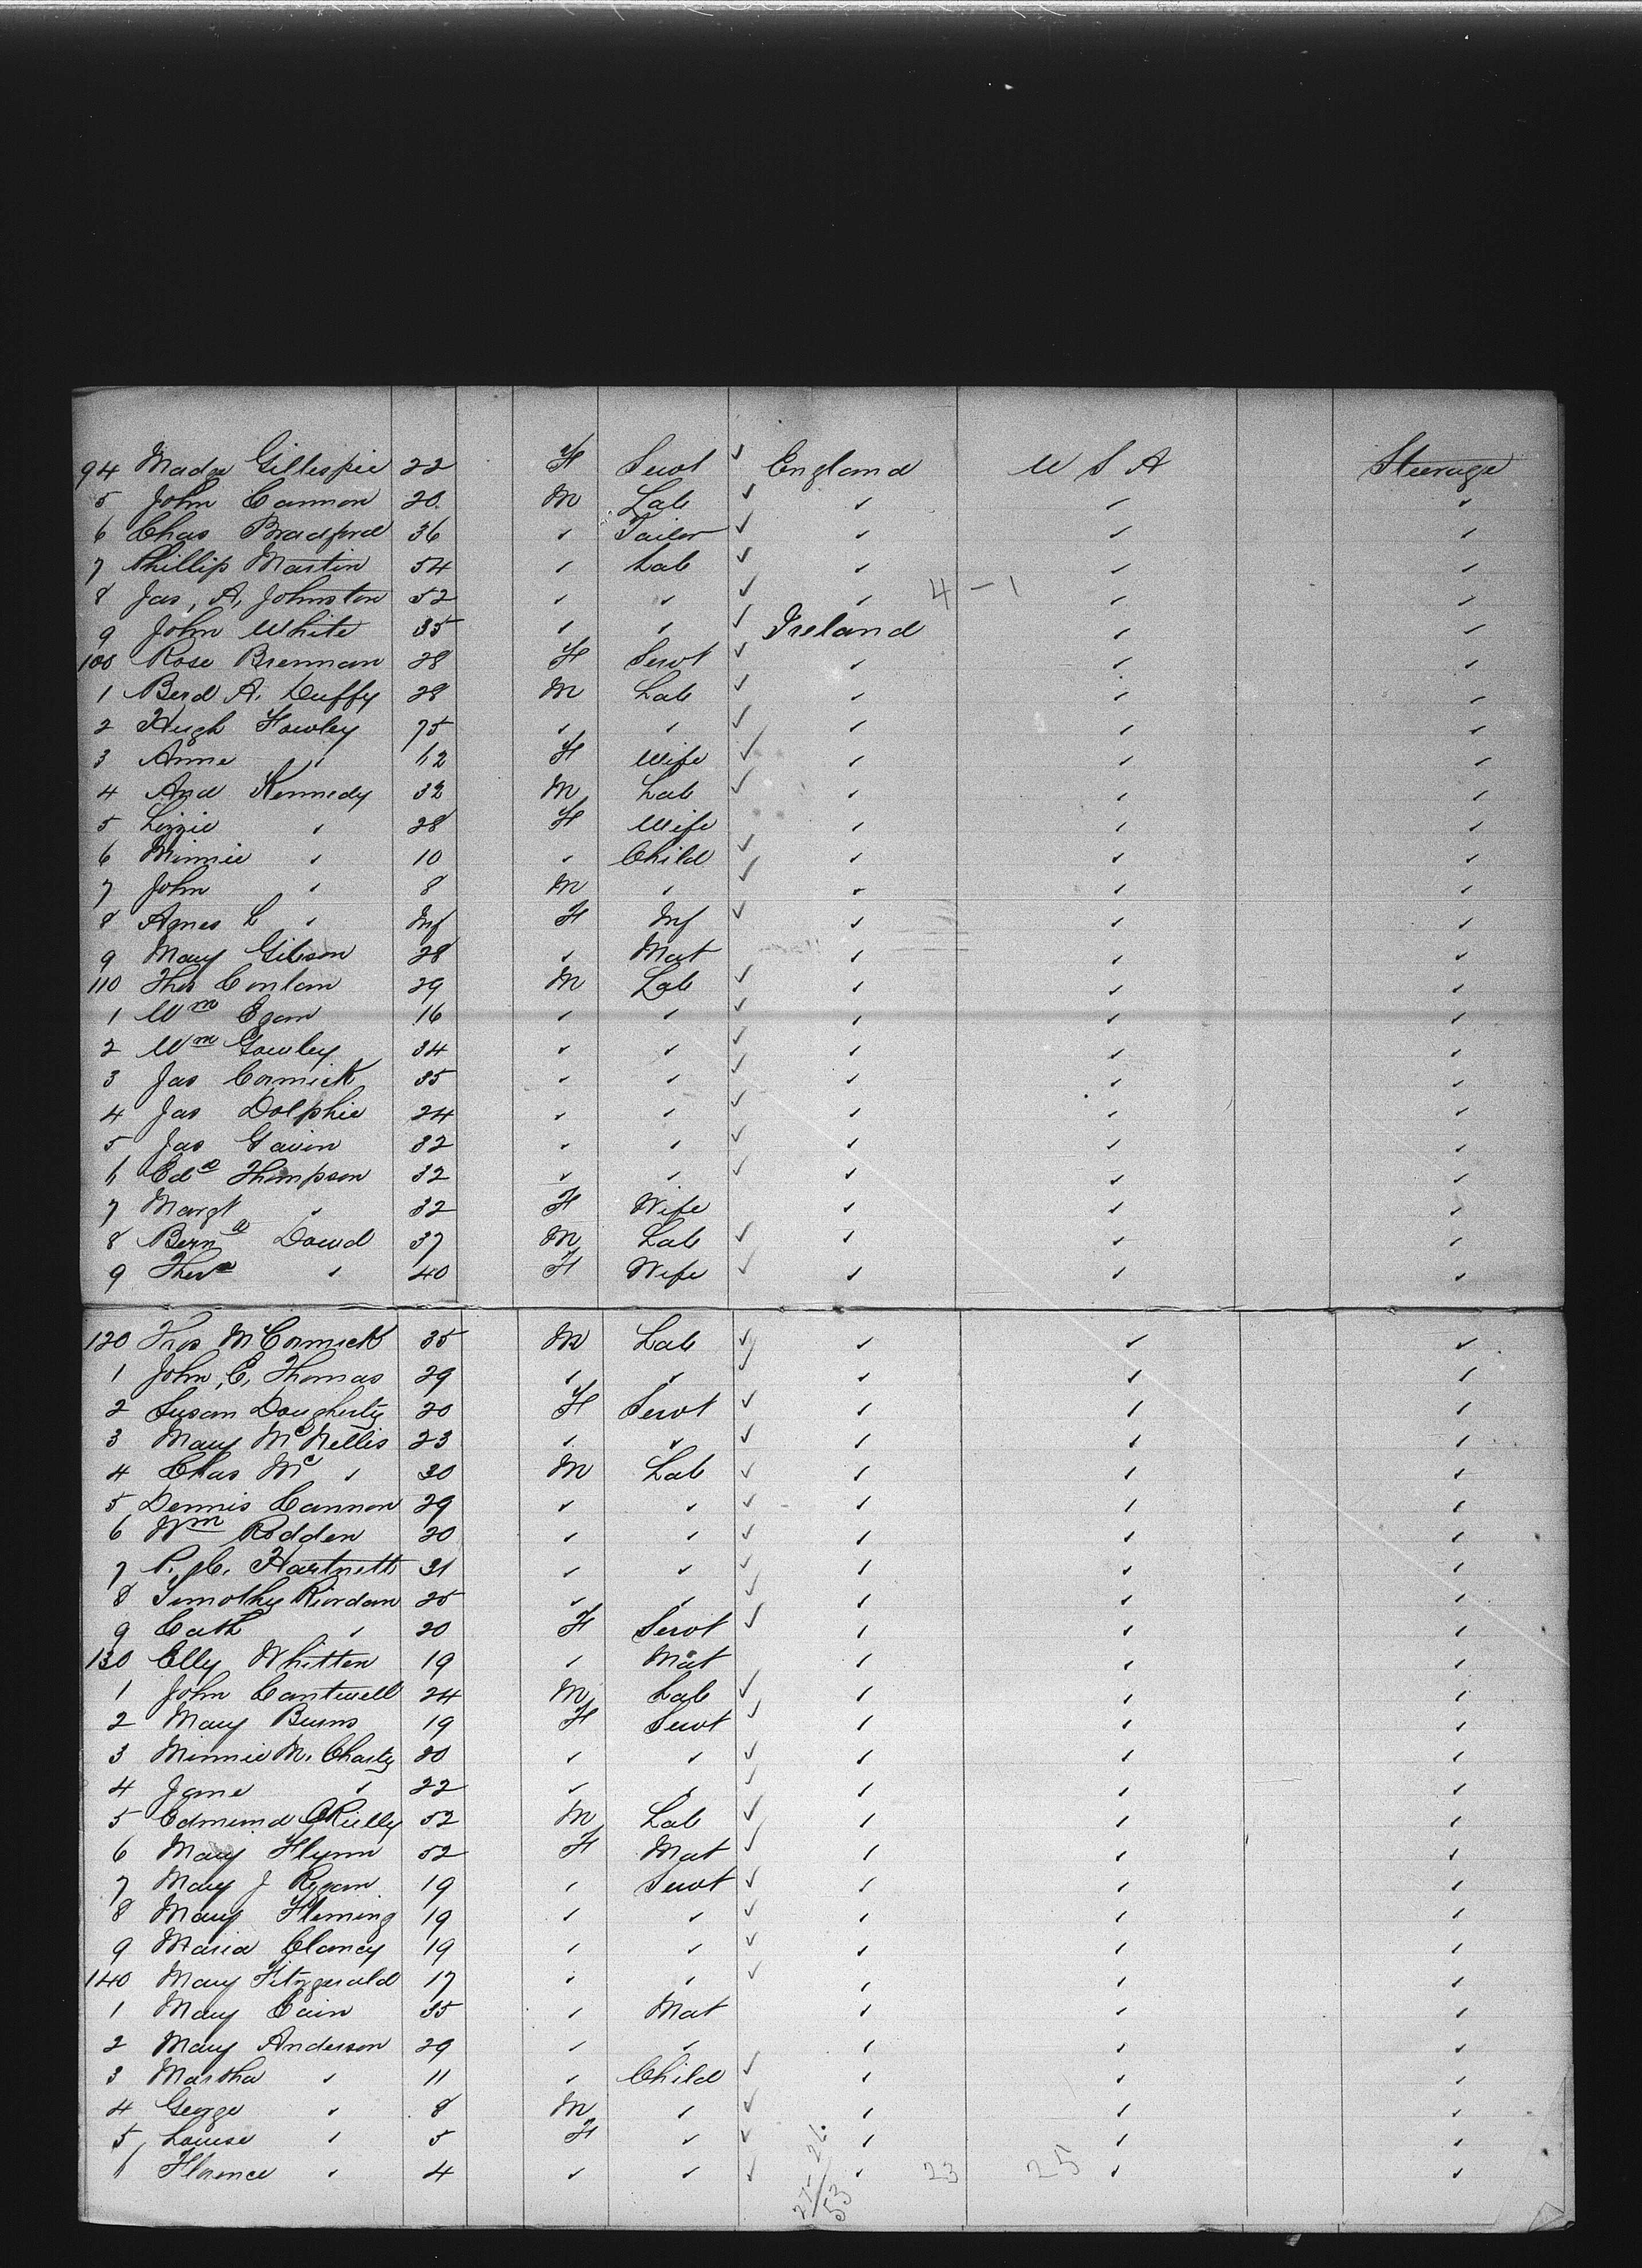 94 Madge Gillespie 22 F Servt ✓ England U S A Steerage
5 John Cannon 20 M Lab ✓ " " "
6 Chas Bradford 36 " Tailor ✓ " " "
7 Phillip Martin 54 " Lab ✓ " " "
8 Jas, A, Johnston 52 " " ✓ " 4 - 1 " "
9 John White 35 " " ✓ Ireland " "
100 Rose Brennan 28 F Servt ✓ " " "
1 Berd A. Duffy 28 M Lab ✓ " " "
2 Hugh Fowley 75 " " ✓ " " "
3 Anne " 62 F Wife ✓ " " "
4 And Kennedy 32 M Lab ✓ " " "
5 Lizzie " 28 F Wife " " "
6 Minnie " 10 " Child ✓ " " "
7 John " 8 M " ✓ " " "
8 Agnes L " Inf F Inf ✓ " " "
9 Mary Gibson 28 " Mat " " "
110 Thos Conlan 29 M Lab ✓ " " "
1 Wm Egan 16 " " ✓ " " "
2 Wm Gowley 34 " " ✓ " " "
3 Jas Cormick 35 " " ✓ " " "
4 Jas Dolphie 24 " " ✓ " " "
5 Jas Gavin 32 " " ✓ " " "
6 Edd Thompson 32 " " ✓ " " "
7 Margt " 32 F Wife " " "
8 Bernd Dowd 37 M Lab ✓ " " "
9 " 40 F Wife ✓ " " "
120 Thos McCormick 35 M Lab ✓ " " "
1 John, E, Thomas 29 " " ✓ " " "
2 Susan Dougherty 20 F Servt ✓ " " "
3 Mary McNellis 23 " " ✓ " " "
4 Chas Mc " 30 M Lab ✓ " " "
5 Dennis Cannon 29 " " ✓ " " "
6 Wm Rodden 20 " " ✓ " " "
7 P. Hartnett 31 " " ✓ " " "
8 Timothy Riordan 25 " " ✓ " " "
9 Cath " 20 F Servt ✓ " " "
130 Elly Whitten 19 " Mat " " "
1 John Cantwell 24 M Lab ✓ " " "
2 Mary Burns 19 F Servt ✓ " " "
3 Minnie Mc Charty 20 " " ✓ " " "
4 Jane " 22 " " ✓ " " "
5 Edmund O'Rielly 52 M Lab ✓ " " "
6 Mary Flynn 52 F Mat ✓ " " "
7 Mary J Regan 19 " Servt ✓ " " "
8 Mary Fleming 19 " " ✓ " " "
9 Maria Clancy 19 " " ✓ " " "
140 Mary Fitzgerald 17 " " ✓ " " "
1 Mary Cain 35 " Mat " " "
2 Mary Anderson 29 " " " " "
3 Martha " 11 " Child ✓ " " "
4 George " 8 M " ✓ " " "
5 Louise " 5 F " ✓ " " "
6 Florence " 4 " " ✓ " 23 25 " "
27 26
53